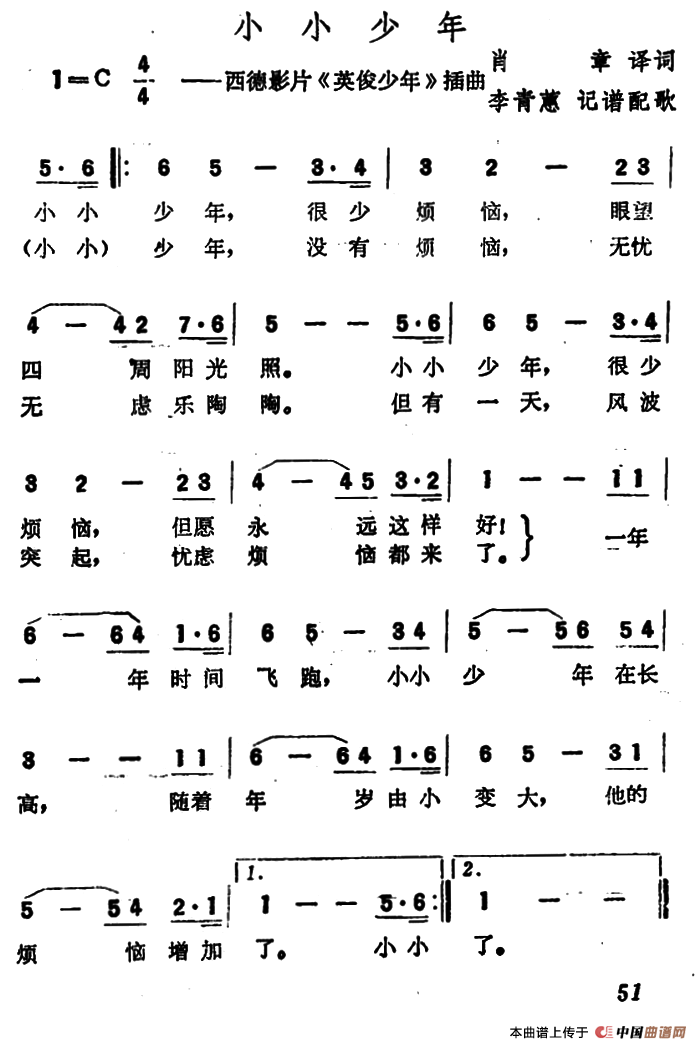 小小少年
1=C 4/4 ——西德影片《英俊少年》插曲
肖 章 译词
李青蕙 记谱配歌
5·6 ‖: 6 5 — 3·4 | 3 2 — 23 |
小小 少年， 很少 烦恼， 眼望
（小小）少年， 没有 烦恼， 无忧
4 — 42 7·6 | 5 — — 5·6 | 6 5 — 3·4 |
四 周阳光 照。 小小 少年， 很少
无 虑乐陶 陶。 但有 一天， 风波
3 2 — 23 | 4 — 45 3·2 | 1 — — 11 |
烦恼， 但愿 永 远这样 好！ 一年
突起， 忧虑 烦 恼都来 了。
6 — 64 1·6 | 6 5 — 34 | 5 — 56 54 |
一 年时间 飞跑， 小小 少 年在长
3 — — 11 | 6 — 64 1·6 | 6 5 — 31 |
高， 随着 年 岁由小 变大， 他的
1. 2.
5 — 54 2·1 | 1 — — 5·6 :‖ 1 — — ‖
烦 恼增加 了。 小小 了。
51
本曲谱上传于 中国曲谱网